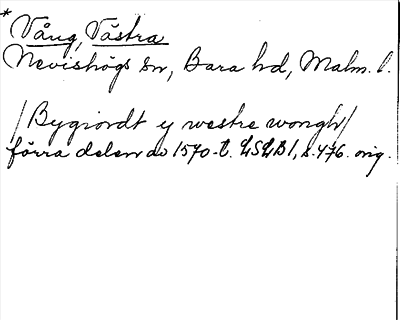 * Vång, Västra
Nevishögs sn, Bara hd, Malm. l.
/Bygiordt ij westre wongh/
förra delen av 1570-t. LSLB 1, s. 476. orig.